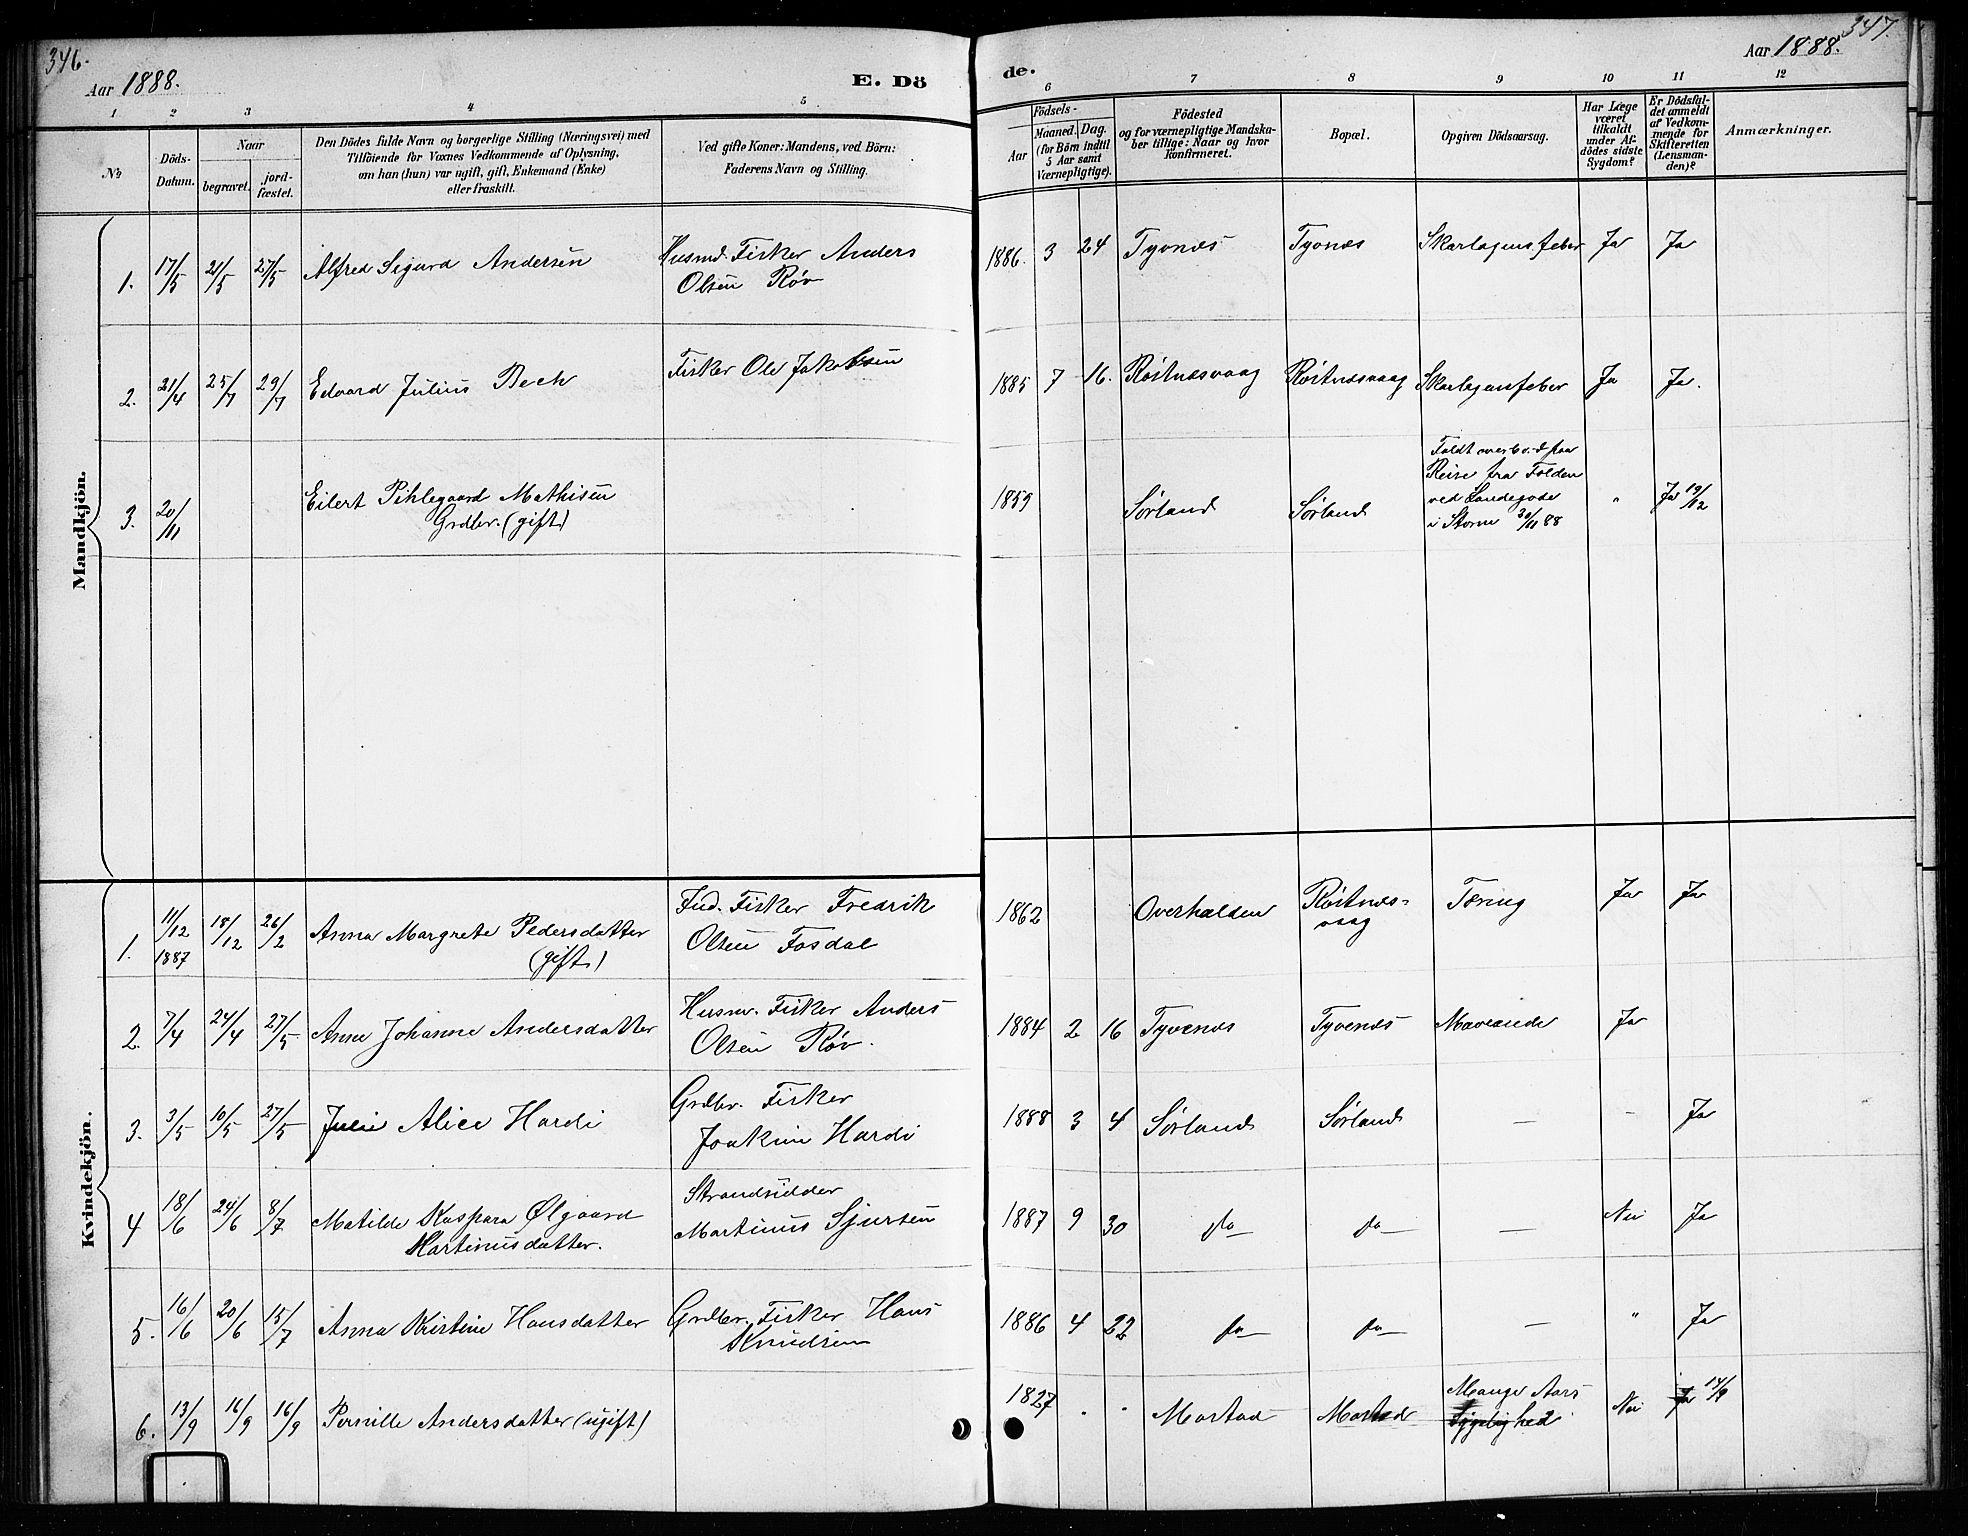 346.
Aar 1888.
E. Dö
1 2 3 4 5
No
Döds-
Datum.
Naar
begravet.
jord-
fæstet.
Den Dödes fulde Navn og borgerlige Stilling (Næringsvei) med
Tilföiende for Voxnes Vedkommende af Oplysning,
om han (hun) var ugift, gift, Enkemand (Enke)
eller fraskilt.
Ved gifte Koner: Mandens, ved Börn:
Faderens Navn og Stilling.
Mandkjön.
1. 17/5 21/5 27/5 Alfred Sigurd Andersen Husmd. Fisker Anders
Olsen Røv
2. 21/4 25/7 29/7 Edvard Julius Bech Fisker Ole Jakobsen
3. 20/11 Eilert Pihlegaard Mathisen
Grdbr. (gift)
Kvindekjön.
1. 11/12 1887 18/12 26/2 Anna Margrete Pedersdatter
(gift)
Ind. Fisker Fredrik
Olsen Fosdal
2. 7/4 24/4 27/5 Anne Johanne Andersdatter Husm. Fisker Anders
Olsen Røv.
3. 3/5 10/5 27/5 Julie Alice Hardi Grdbr. Fisker
Joakim Hardi
4 18/6 24/6 8/7 Matilde Kaspara Ølgaard
Martinusdatter.
Strandsidder
Martinus Sjursen
5. 16/6 20/6 15/7 Anna Kristine Hansdatter Grdbr. Fisker Hans
Knudsen
6. 13/9 16/9 16/9 Pernille Andersdatter (ugift)
347.
Aar 1888.
de.
6 7 8 9 10 11 12
Födsels-
Aar
Maaned. Dag.
(for Börn indtil
5 Aar samt
Værnepligtige).
Födested
og for værnepligtige Mandska-
ber tillige: Naar og hvor
konfirmeret.
Bopæl.
Opgiven Dödsaarsag.
Har Læge
været
tilkaldt
under Af-
dödes sidste
Sygdom?
Er Dödsfal-
det anmeldt
af Vedkom-
mende for
Skifteretten
(Lensman-
den)?
Anmærkninger.
1886. 3 24 Tyvnæs Tyvnæs Skarlagensfeber Ja Ja
1885 7 16. Røstnæsvaag Røstnæsvaag Skarlagensfeber Ja Ja.
1859 Sørland Sørland
Faldt overbord paa
Reise fra Folden
ved Landegode
i Storm 30/11 88
" Ja 19/12
1862 Overhalden Røstnæs-
vaag
Tæring Ja Ja
1884 2 16 Tyvenæs Tyvenæs Ja
1888 3 4 Sørland Sørland — - Ja
1887 9 30 do do — Nei Ja
1886 4 22 do do — " Ja
1827 . . Mostad Mostad Mange Aars
Sygelighed
Nei Ja 14/9